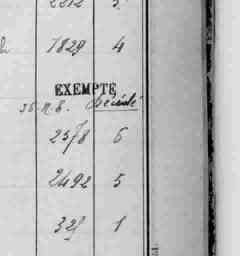 2212 5
1829 4
EXEMPTÉ
36.N.B. Décédé
2578 6
2492 5
325 1